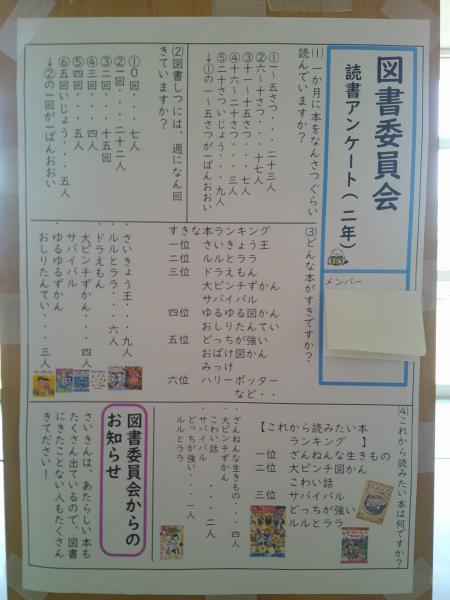 図書委員会
読書アンケート(二年)
メンバー
⑴一か月に本をなんさつぐらい
読んでいますか?
①一〜五さつ・・・二十三人
②六〜十さつ・・・十七人
③十一〜十五さつ・・・七人
④十六〜二十さつ・・・三人
⑤二十さついじょう・・・九人
→①の一〜五さつが一ばんおおい
⑵図書しつには、週になん回
きていますか?
①0回・・・七人
②一回・・・二十二人
③二回・・・十五回
④三回・・・四人
⑤四回・・・五人
⑥五回いじょう・・・五人
→②の一回が一ばんおおい
⑶どんな本がすきですか?
すきな本ランキング
一位 さいきょう王
二位 ルルとララ
三位 ドラえもん
大ピンチずかん
サバイバル
四位 ゆるゆる図かん
おしりたんてい
五位 どっちが強い
おばけ図かん
みっけ
六位 ハリーポッター
など・・
・さいきょう王・・・九人
・ルルとララ・・・六人
・ドラえもん
・大ピンチずかん・・・四人
・サバイバル
・ゆるゆるずかん
・おしりたんてい・・・三人
⑷これから読みたい本は何ですか?
【これから読みたい本
ランキング 】
一位 ざんねんな生きもの
二位 大ピンチ図かん
こわい話
三位 サバイバル
どっちが強い
ルルとララ
・ざんねんな生きもの・・・四人
・大ピンチずかん
・こわい話・・・二人
・サバイバル
・どっちが強い・・・一人
・ルルとララ
図書委員会からの
お知らせ
さいきんは、あたらしい本も
たくさん出ているので、図書
にきたことない人もたくさん
きてださい!